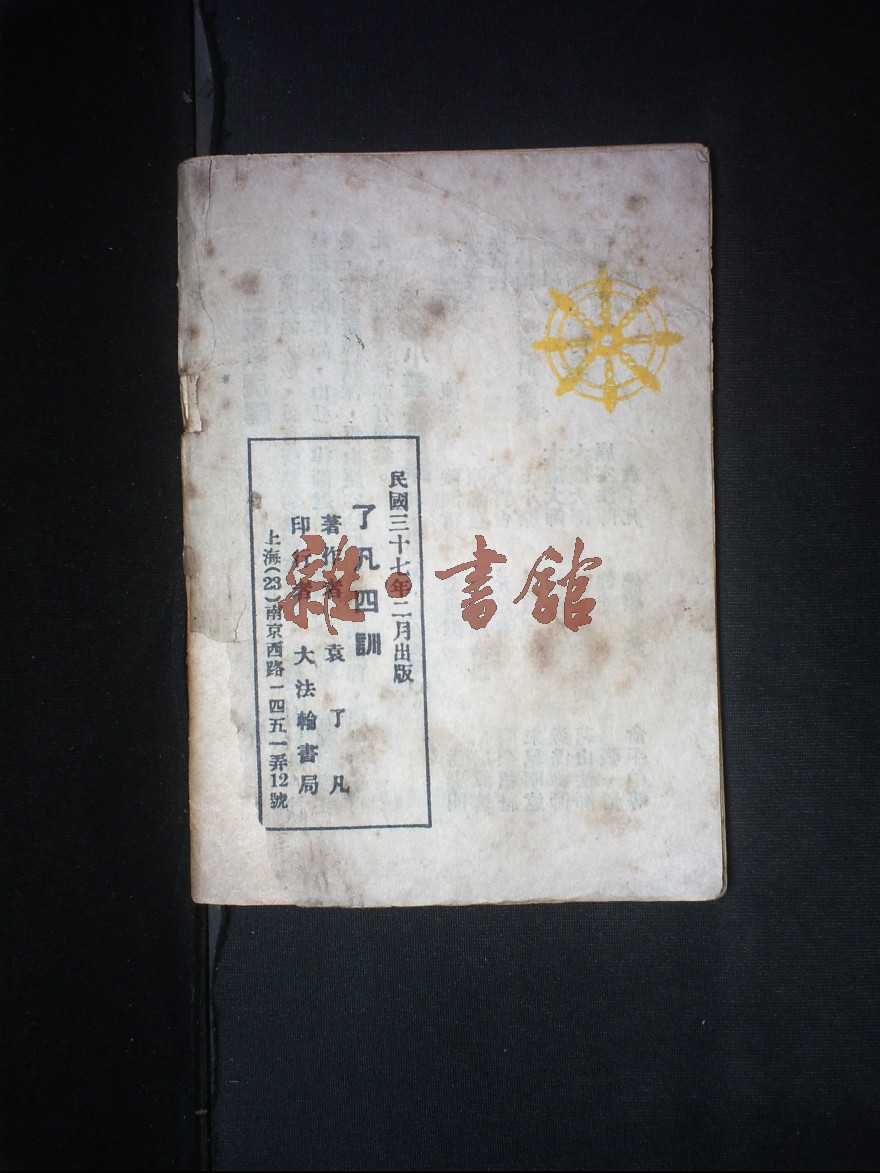 民國三十七年二月出版
了凡四訓
著作者 袁了凡
印行者 大法輪書局
上海(23)南京西路一四五一弄12號
雜·書館